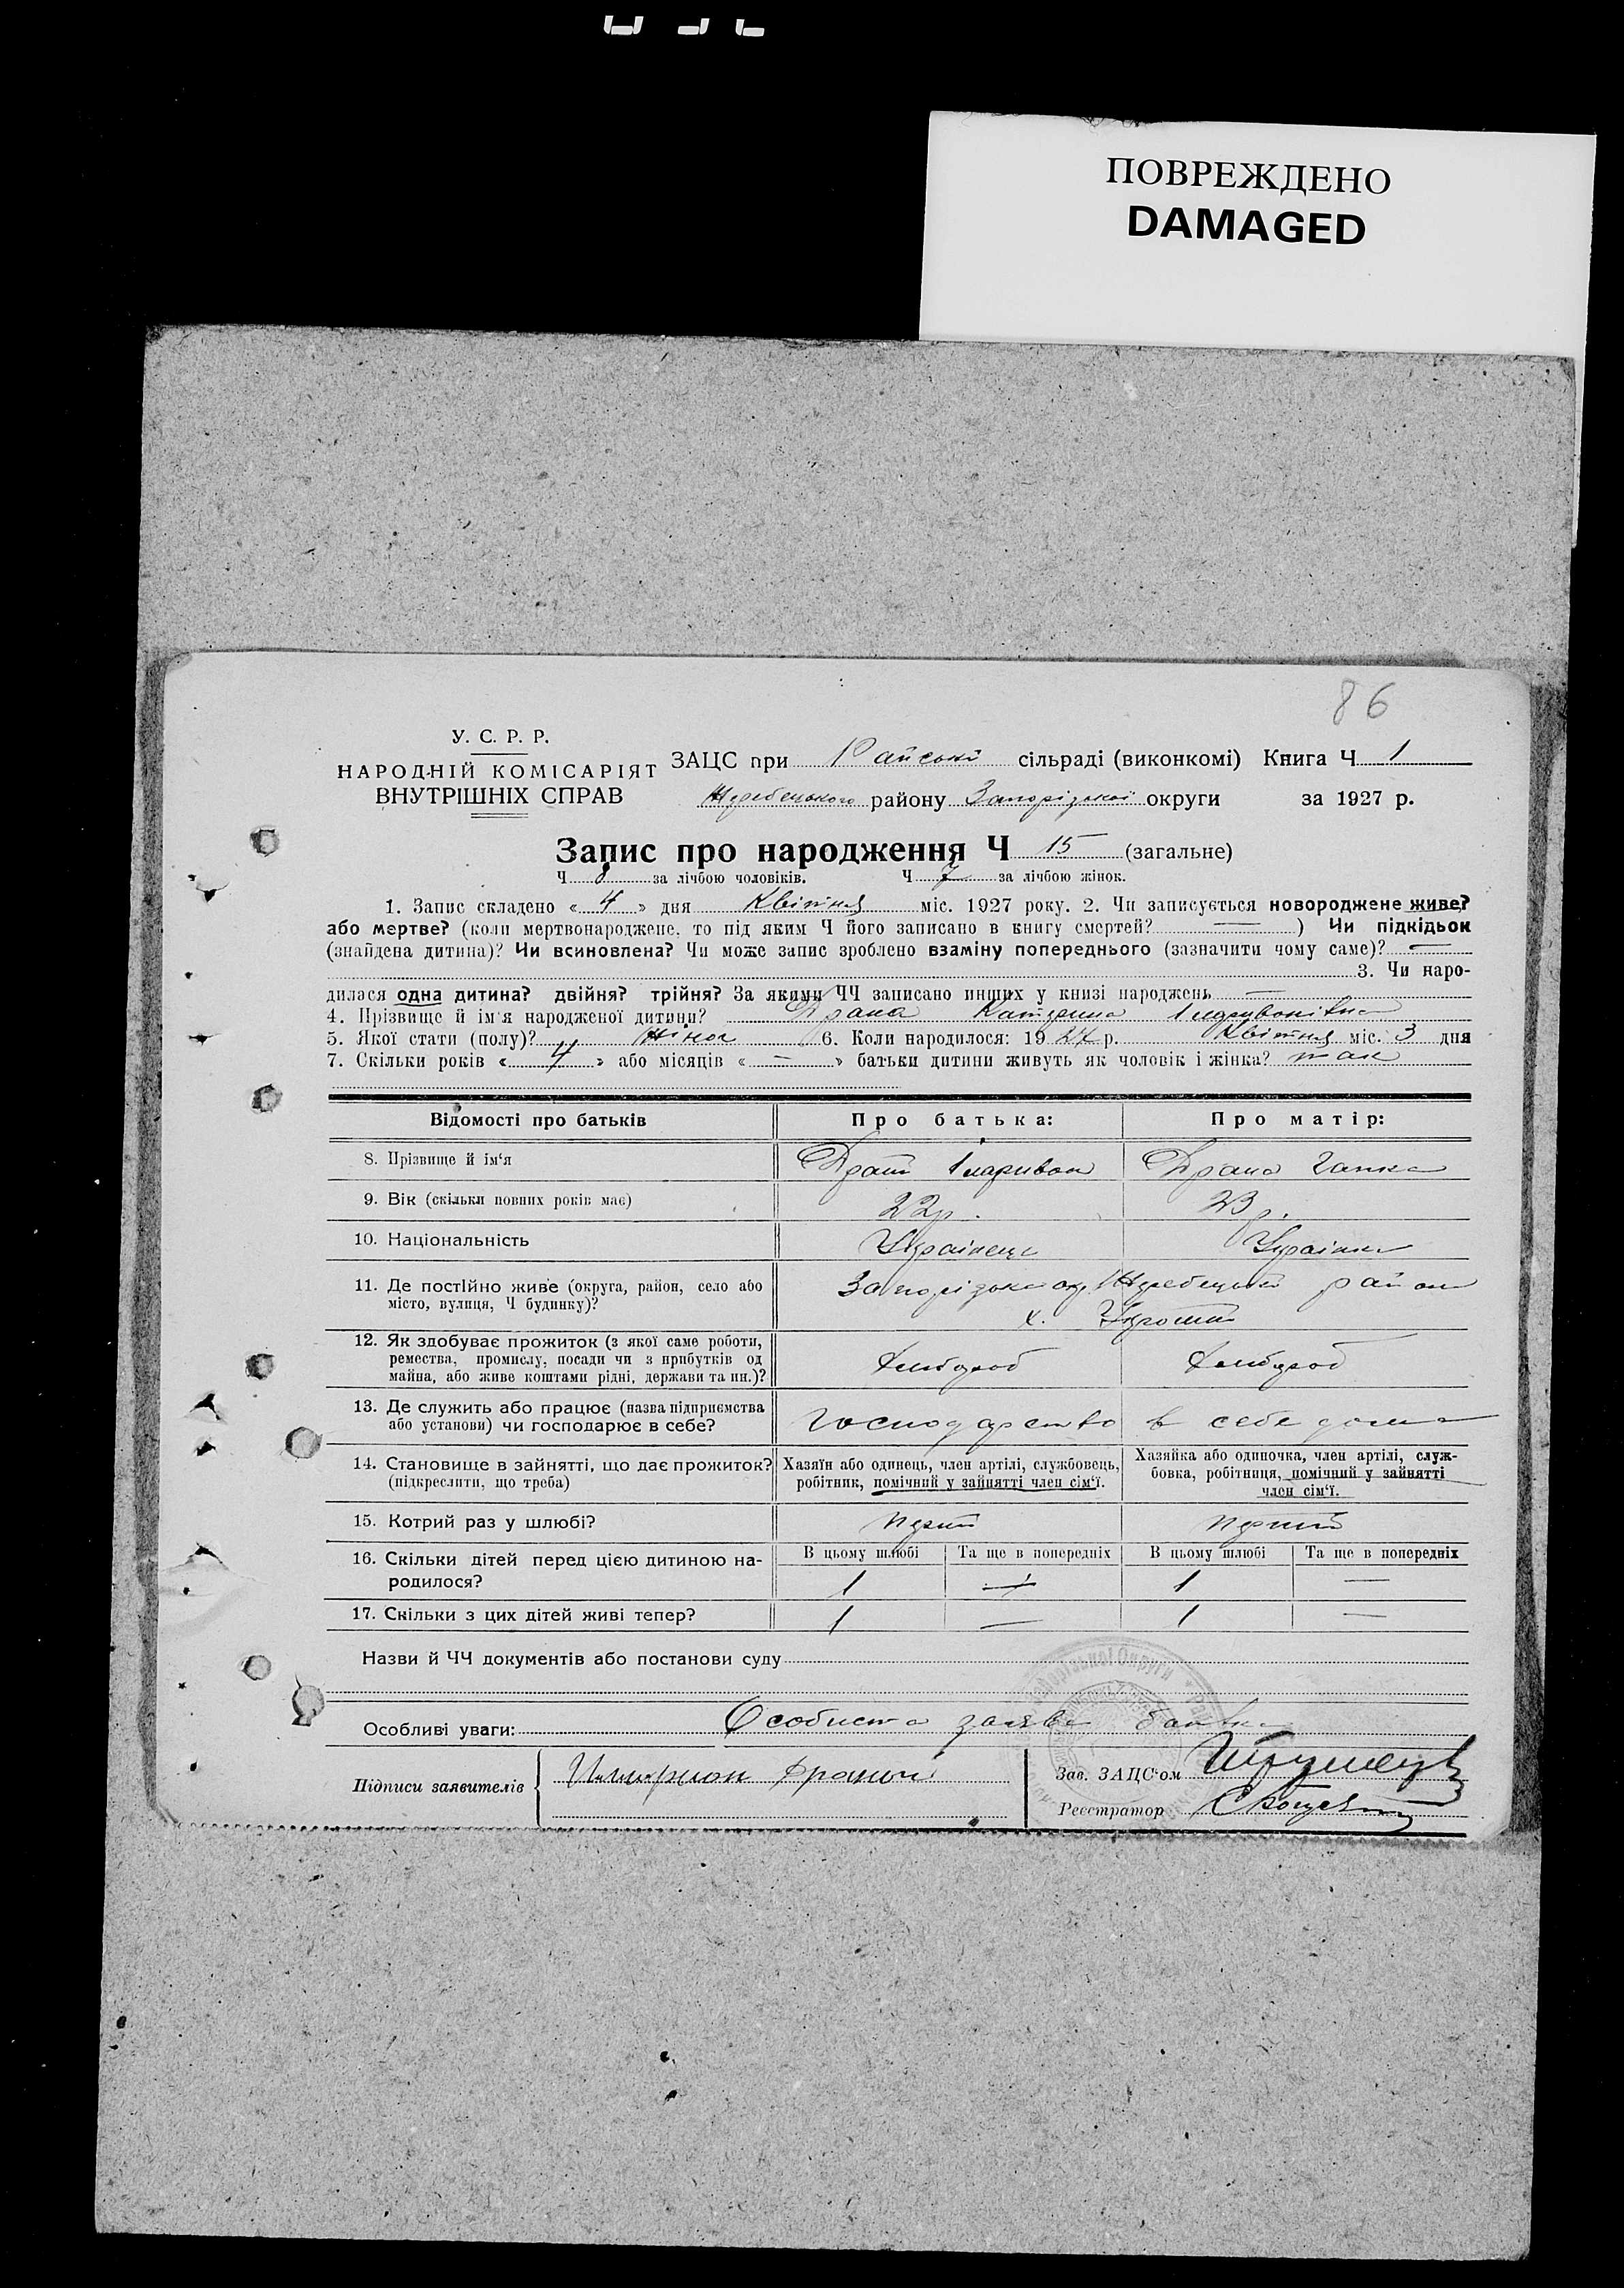 ПОВРЕЖДЕНО
DAMAGED
86
У. С. Р. Р.
НАРОДНІЙ КОМІСАРІЯТ
ВНУТРІШНІХ СПРАВ
ЗАЦС при Райські сільраді (виконкомі) Книга Ч 1
Жеребецького району Запорізької округи за 1927 р.
Запис про народження Ч 15 (загальне)
Ч 8 за лічбою чоловіків. Ч 7 за лічбою жінок.
1. Запис складено « 4 » дня Квітня міс. 1927 року. 2. Чи записується новороджене живе?
або мертве? (коли мертвонароджене, то під яким Ч його записано в книгу смертей? — ) Чи підкідьок
(знайдена дитина)? Чи всиновлена? Чи може запис зроблено взаміну попереднього (зазначити чому саме)? —
3. Чи наро-
дилася одна дитина? двійня? трійня? За якими ЧЧ записано инших у книзі народжень —
4. Прізвище й ім'я народженої дитини? Драна Катерина Іларивонівна
5. Якої стати (полу)? жіноч 6. Коли народилося: 1927 р. Квітня міс. 3 дня
7. Скільки років « 4 » або місяців « — » батьки дитини живуть як чоловік і жінка? так
Відомості про батьків Про батька: Про матір:
8. Прізвище й ім'я Драний Іларивон Драна Ганна
9. Вік (скільки повних років має) 22 р. 23 р.
10. Національність Українець Українка
11. Де постійно живе (округа, район, село або
місто, вулиця, Ч будинку)?
Запорізька окр. Жеребецький район
х.
12. Як здобуває прожиток (з якої саме роботи,
ремества, промислу, посади чи з прибутків од
майна, або живе коштами рідні, держави та ин.)?
Хлібороб Хлібороб
13. Де служить або працює (назва підприємства
або установи) чи господарює в себе?
Господарство в себе дома
14. Становище в зайнятті, що дає прожиток?
(підкреслити, що треба)
Хазяїн або одинець, член артілі, службовець,
робітник, помічний у зайнятті член сім'ї.
Хазяйка або одиночка, член артілі, служ-
бовка, робітниця, помічний у зайнятті
член сім'ї.
15. Котрий раз у шлюбі? перший перший
16. Скільки дітей перед цією дитиною на-
родилося?
В цьому шлюбі Та ще в попередніх В цьому шлюбі Та ще в попередніх
1 — 1 —
17. Скільки з цих дітей живі тепер? 1 — 1 —
Назви й ЧЧ документів або постанови суду
Особливі уваги: Особиста заява батька
Підписи заявителів Илларион Драный
Зав. ЗАЦС'ом
Реєстратор